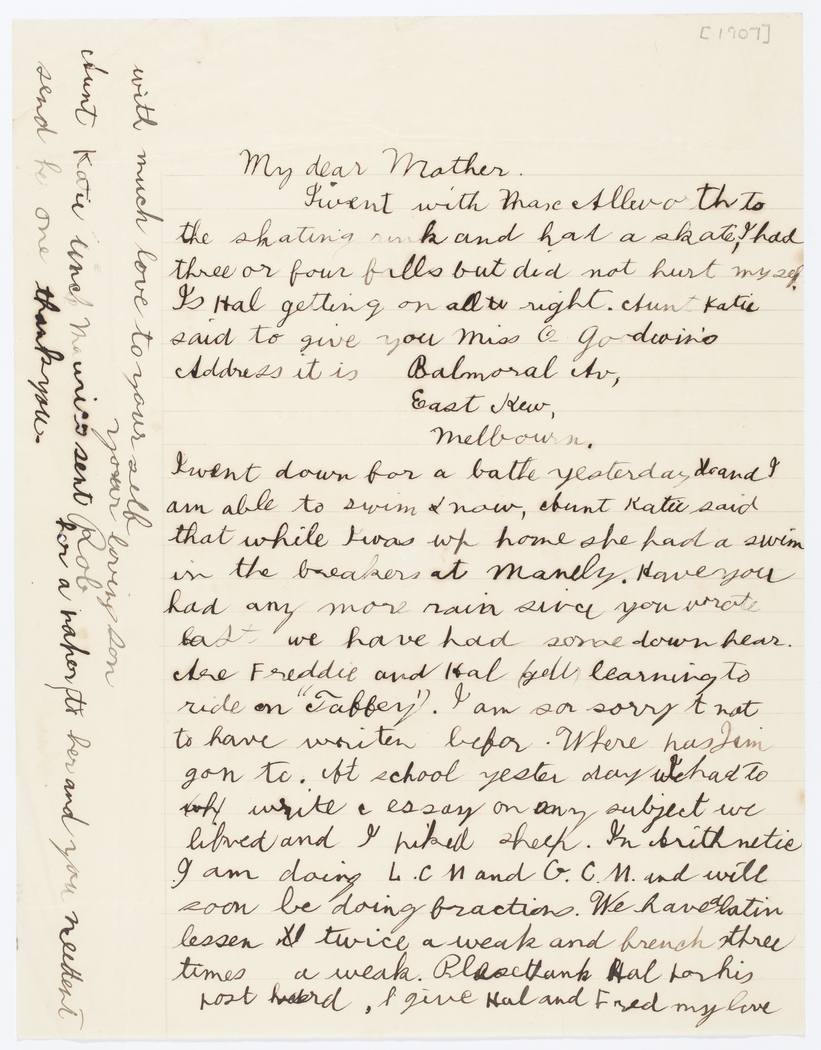 [1907]
My dear Mother.
I went with Max Allworth to
the skating rink and had a skate, I had
three or four falls but did not hurt my self.
Is Hal getting on all right. Aunt Katie
said to give you Miss Goodwin's
Address it is Balmoral Av,
East Kew,
Melbourn.
I went down for a bathe yesterday and I
am able to swim now, Aunt Katie said
that while I was up home she had a swim
in the breakers at Manely. Have you
had any more rain since you wrote
last we have had some down hear.
Are Freddie and Hal learning to
ride on "Tabbey". I am sor sorry t not
to have writen befor. Where has Jim
gon to. At school yester day We had to
write a essay on any subject we
liked and I piked sheep. In Arithmetic
I am doing L.C M and G. C. M. and will
soon be doing fractions. We have a latin
lessen twice a weak and french three
times a weak. Please thank Hal for his
post card, I give Hal and Fred my love
with much love to your self
your loving son
Rob
Aunt Katie Maurice sent for a paper to her and you neednt
send he one thank you.